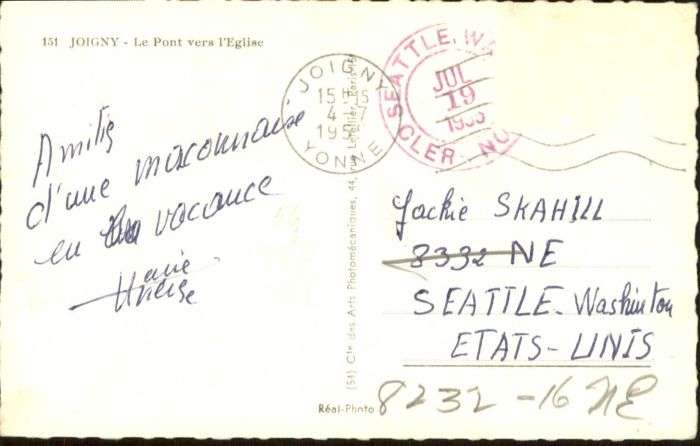 151 JOIGNY - Le Pont vers l'Eglise
JOIGNY
15 H 15
4 - 7
19
YONNE
SEATTLE, WA
JUL
19
CLER NO
Amitiés
d'une
en vacance
Marie
(51) Cie des Arts Photomécaniques, 44, rue Letellier, Paris-15e
Jackie SKAHILL
8332 NE
SEATTLE. Washinton
ETATS-UNIS
8232 -16 NE
Réal-Photo